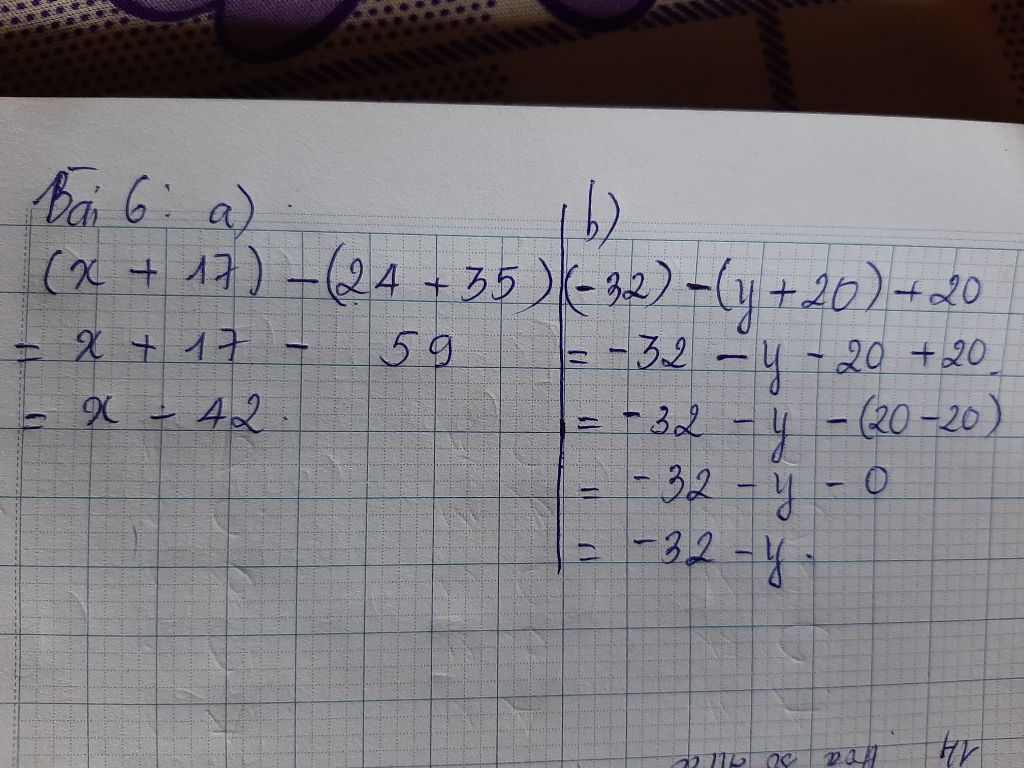 Bài 6: a)
(x + 17) - (24 + 35)
= x + 17 - 59
= x - 42.
b)
(-32) - (y + 20) + 20
= -32 - y - 20 + 20.
= -32 - y - (20 - 20)
= -32 - y - 0
= -32 - y.